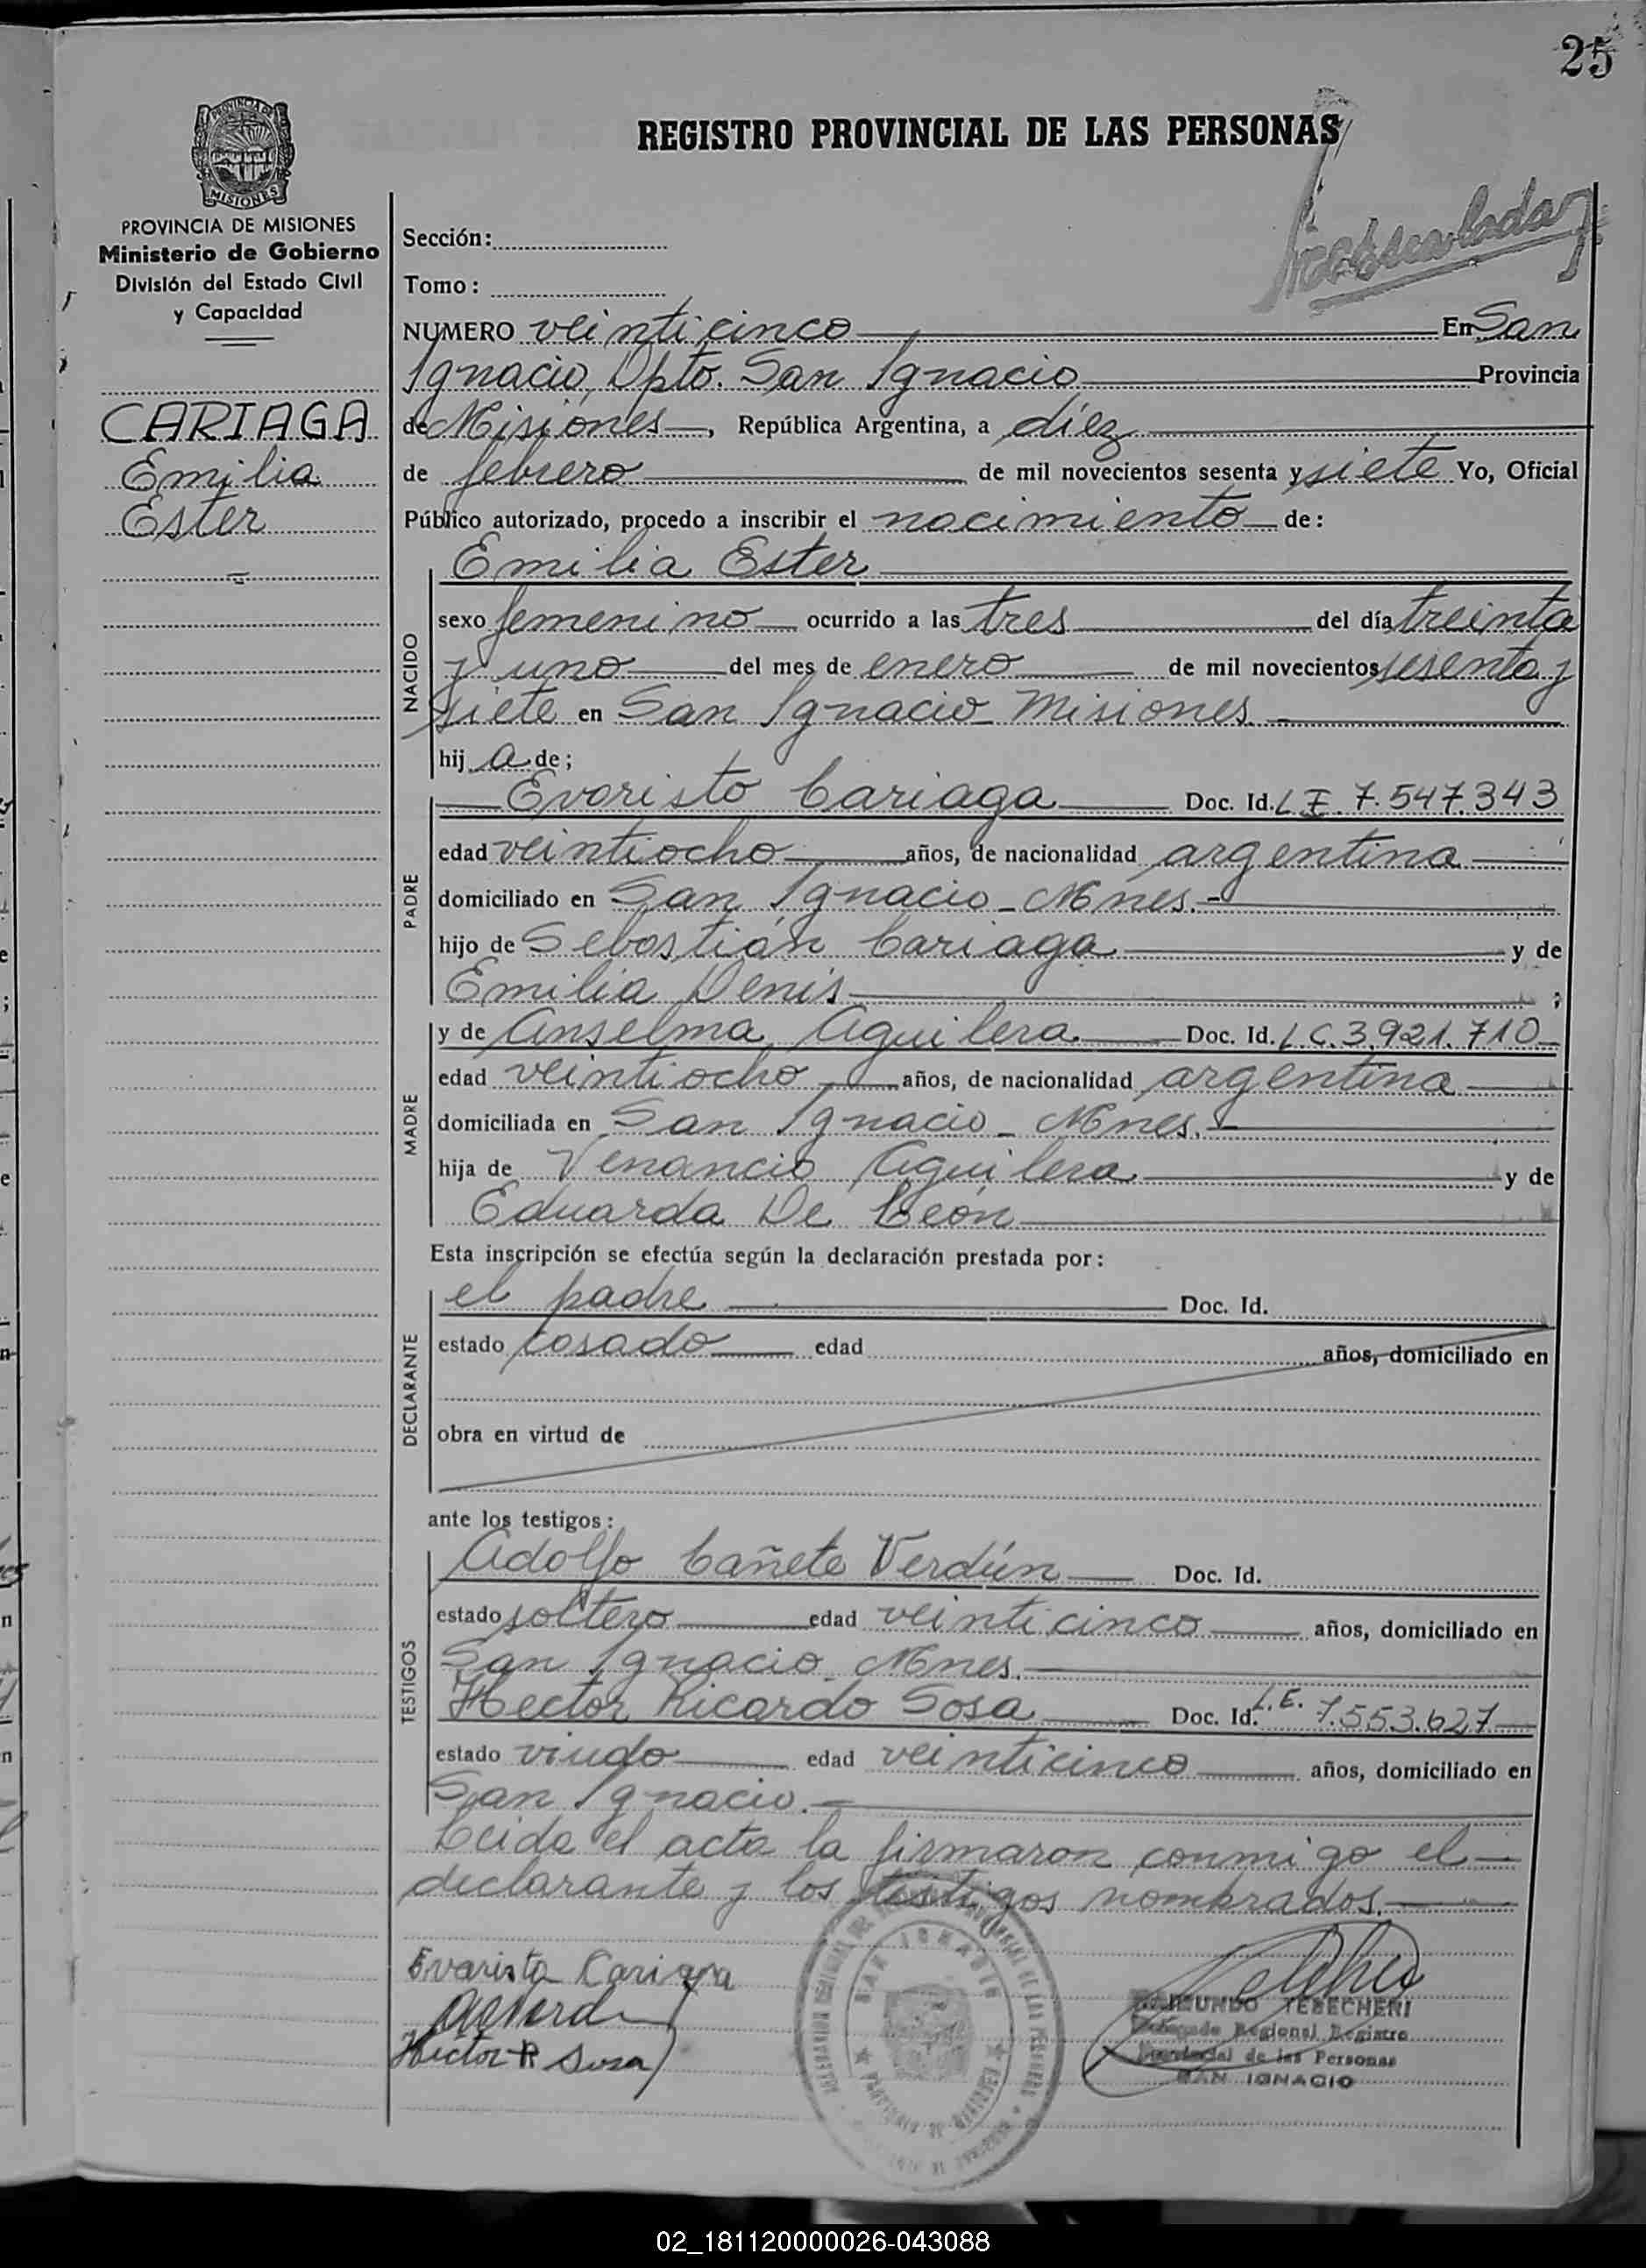 25
REGISTRO PROVINCIAL DE LAS PERSONAS
PROVINCIA DE MISIONES
MISIONES
PROVINCIA DE MISIONES
Ministerio de Gobierno
División del Estado Civil
y Capacidad
CARIAGA
Emilia
Ester
Sección:
Tomo:
NUMERO veinticinco En San
Ignacio, Dpto. San Ignacio Provincia
de Misiones, República Argentina, a diez
de febrero de mil novecientos sesenta y siete Yo, Oficial
Público autorizado, procedo a inscribir el nacimiento de:
NACIDO
Emilia Ester
sexo femenino ocurrido a las tres del día treinta
y uno del mes de enero de mil novecientos sesenta y
siete en San Ignacio Misiones.
hij a de;
PADRE
Evaristo Cariaga Doc. Id. L E. 7.547.343
edad veintiocho años, de nacionalidad argentina
domiciliado en San Ignacio - Mnes.-
hijo de Sebastián Cariaga y de
Emilia Denis ;
MADRE
y de Anselma Aguilera Doc. Id. L C. 3.921.710
edad veintiocho años, de nacionalidad argentina
domiciliada en San Ignacio - Mnes.
hija de Venancio Aguilera y de
Eduarda De León
Esta inscripción se efectúa según la declaración prestada por:
DECLARANTE
el padre Doc. Id.
estado casado edad años, domiciliado en
obra en virtud de
ante los testigos:
TESTIGOS
Adolfo Cañete Verdún Doc. Id.
estado soltero edad veinticinco años, domiciliado en
San Ignacio Mnes.
Hector Ricardo Sosa Doc. Id. L.E. 7.553.627
estado viudo edad veinticinco años, domiciliado en
San Ignacio.-
Leida el acta la firmaron conmigo el
declarante y los testigos nombrados.
Evaristo Cariaga
Hector R Sosa
SAN IGNACIO
RAIMUNDO TEBECHERI
Delegado Regional Registro
Provincial de las Personas
SAN IGNACIO
02_181120000026-043088